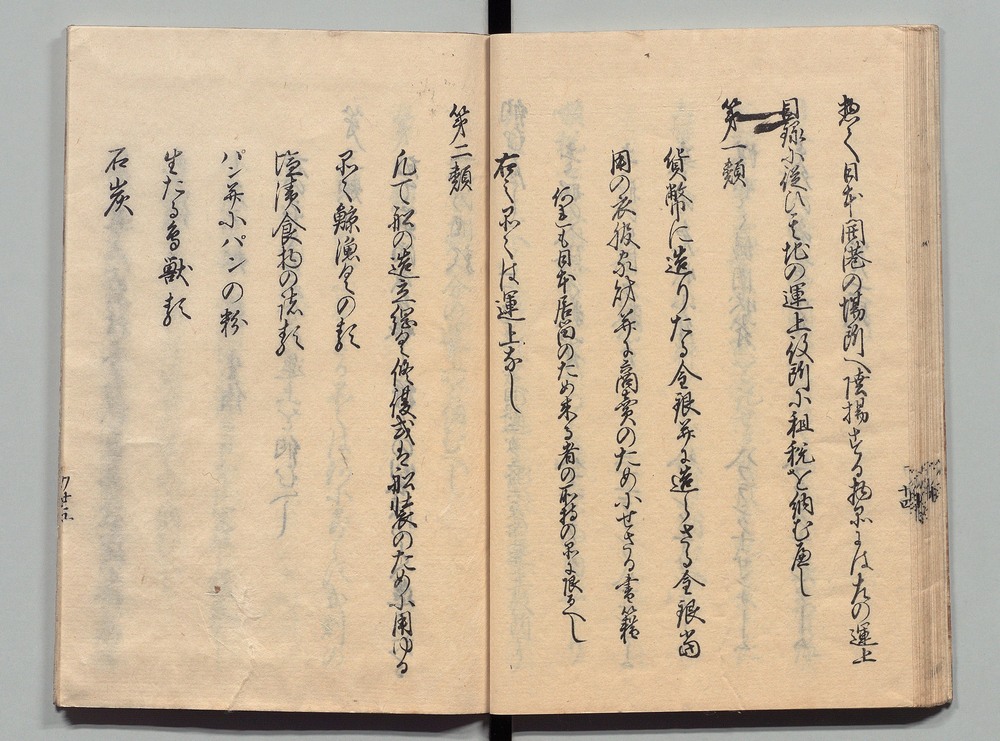 惣て日本開港の場所へ陸揚する物品には左の運上
目録に従ひ其地の運上役所に租税を納む遍し
第一類
貨幣に造りたる金銀并に造らさる金銀当
用の衣服家財并に商売のためにせさる書籍
何も日本居留のため来る者の所持の品に限るへし
右之品々は運上なし
第二類
凡て船の造立綱具修復或は船装のために用ゆる
品々鯨漁具の類
塩漬食物の諸類
パン并にパンの粉
生たる鳥獣類
石炭